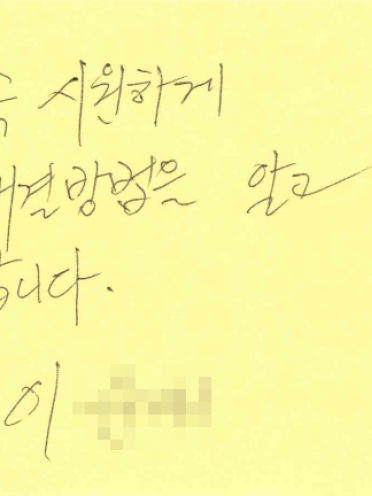 시원하게
결방법은 알고
니다.
이